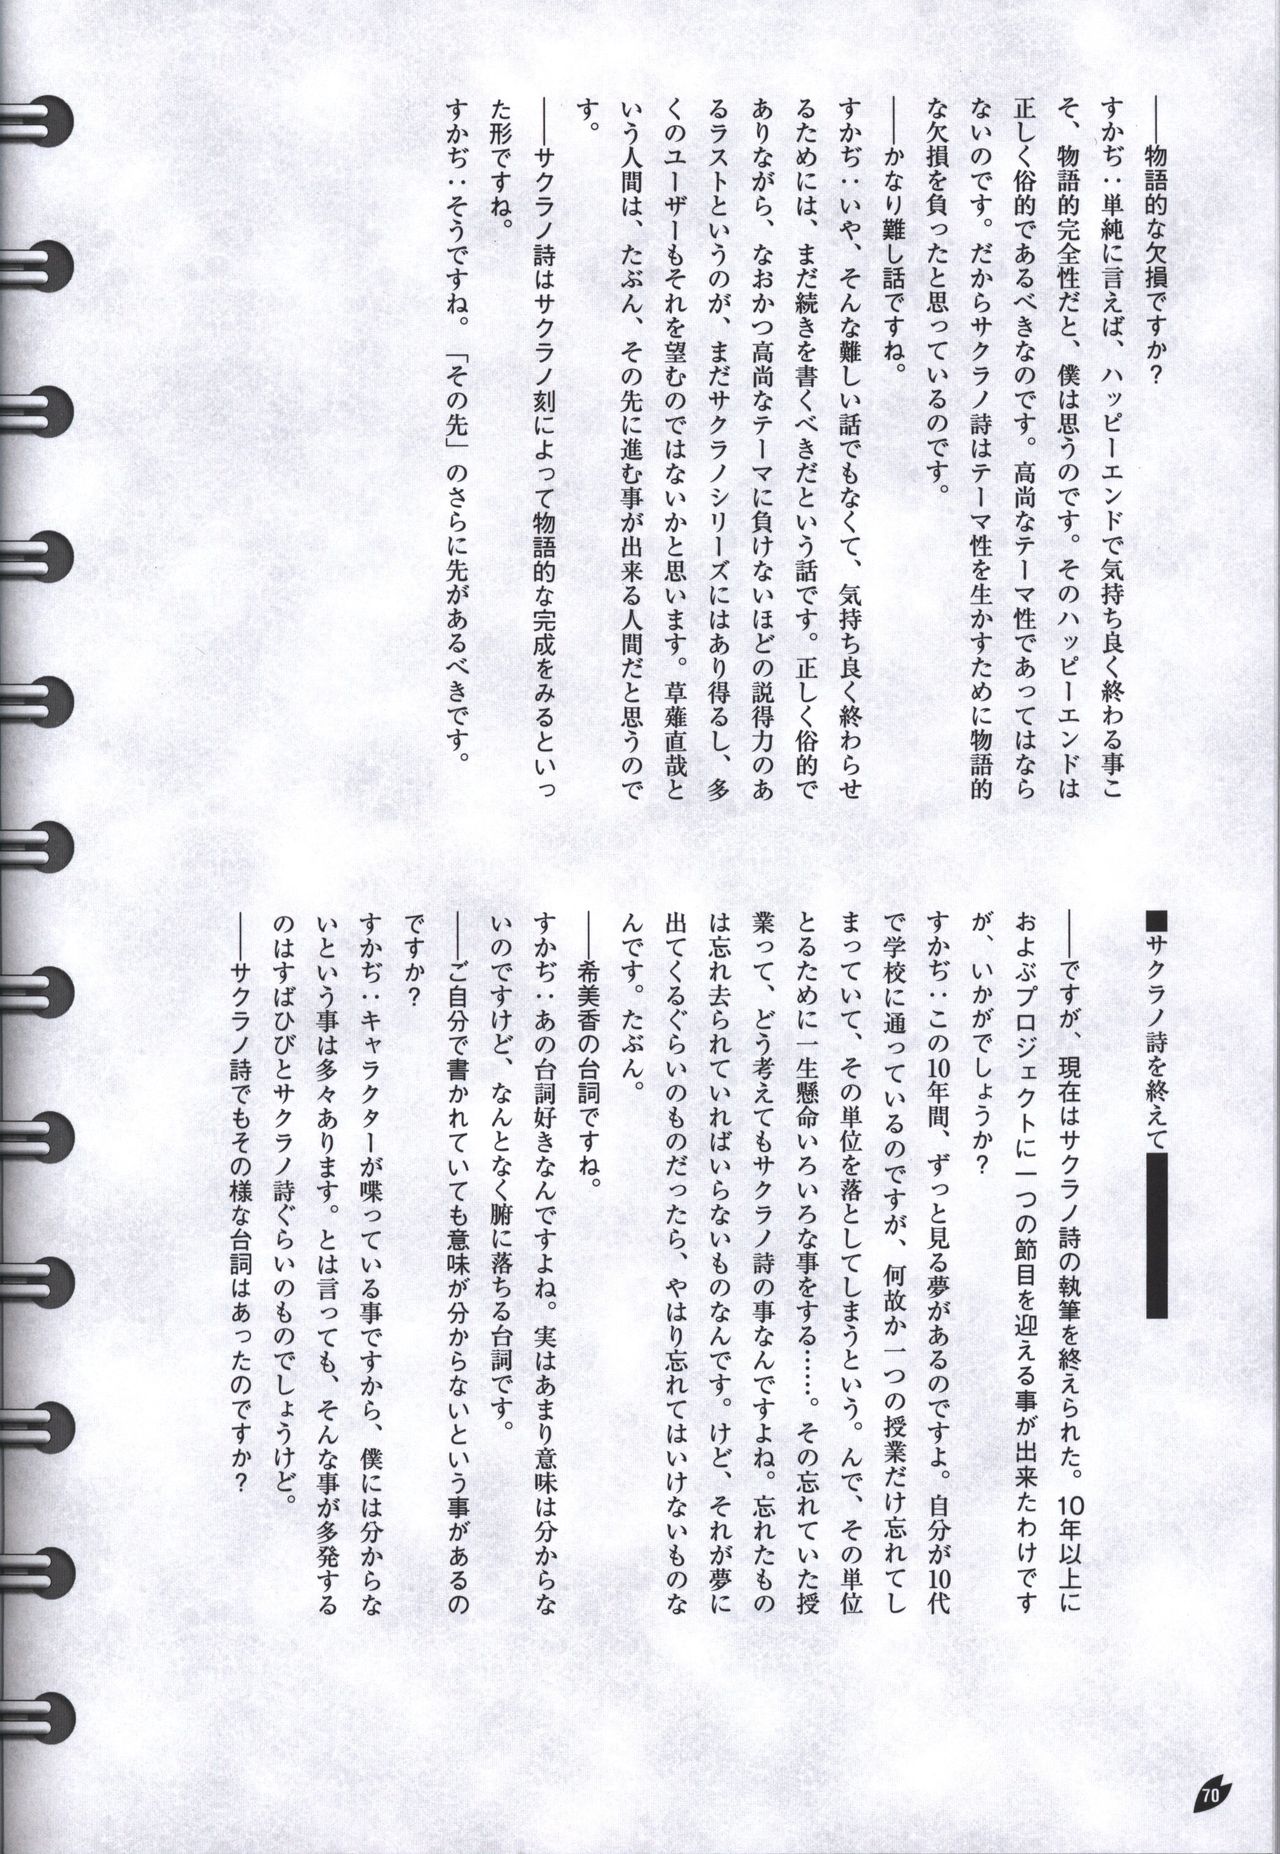 ――物語的な欠損ですか？
すかぢ：単純に言えば、ハッピーエンドで気持ち良く終わる事こ
そ、物語的完全性だと、僕は思うのです。そのハッピーエンドは
正しく俗的であるべきなのです。高尚なテーマ性であってはなら
ないのです。だからサクラノ詩はテーマ性を生かすために物語的
な欠損を負ったと思っているのです。
――かなり難し話ですね。
すかぢ：いや、そんな難しい話でもなくて、気持ち良く終わらせ
るためには、まだ続きを書くべきだという話です。正しく俗的で
ありながら、なおかつ高尚なテーマに負けないほどの説得力のあ
るラストというのが、まだサクラノシリーズにはあり得るし、多
くのユーザーもそれを望むのではないかと思います。草薙直哉と
いう人間は、たぶん、その先に進む事が出来る人間だと思うので
す。
――サクラノ詩はサクラノ刻によって物語的な完成をみるといっ
た形ですね。
すかぢ：そうですね。「その先」のさらに先があるべきです。
■サクラノ詩を終えて
――ですが、現在はサクラノ詩の執筆を終えられた。10年以上に
およぶプロジェクトに一つの節目を迎える事が出来たわけです
が、いかがでしょうか？
すかぢ：この10年間、ずっと見る夢があるのですよ。自分が10代
で学校に通っているのですが、何故か一つの授業だけ忘れてし
まっていて、その単位を落としてしまうという。んで、その単位
とるために一生懸命いろいろな事をする……。その忘れていた授
業って、どう考えてもサクラノ詩の事なんですよね。忘れたもの
は忘れ去られていればいらないものなんです。けど、それが夢に
出てくるぐらいのものだったら、やはり忘れてはいけないものな
んです。たぶん。
――希美香の台詞ですね。
すかぢ：あの台詞好きなんですよね。実はあまり意味は分からな
いのですけど、なんとなく腑に落ちる台詞です。
――ご自分で書かれていても意味が分からないという事があるの
ですか？
すかぢ：キャラクターが喋っている事ですから、僕には分からな
いという事は多々あります。とは言っても、そんな事が多発する
のはすばひびとサクラノ詩ぐらいのものでしょうけど。
――サクラノ詩でもその様な台詞はあったのですか？
70